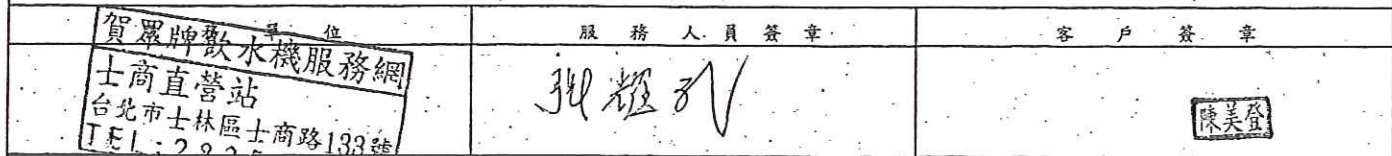 單位 服務人員簽章 客戶簽章
賀眾牌飲水機服務網
士商直營站
台北市士林區士商路133號
TEL:
陳美登